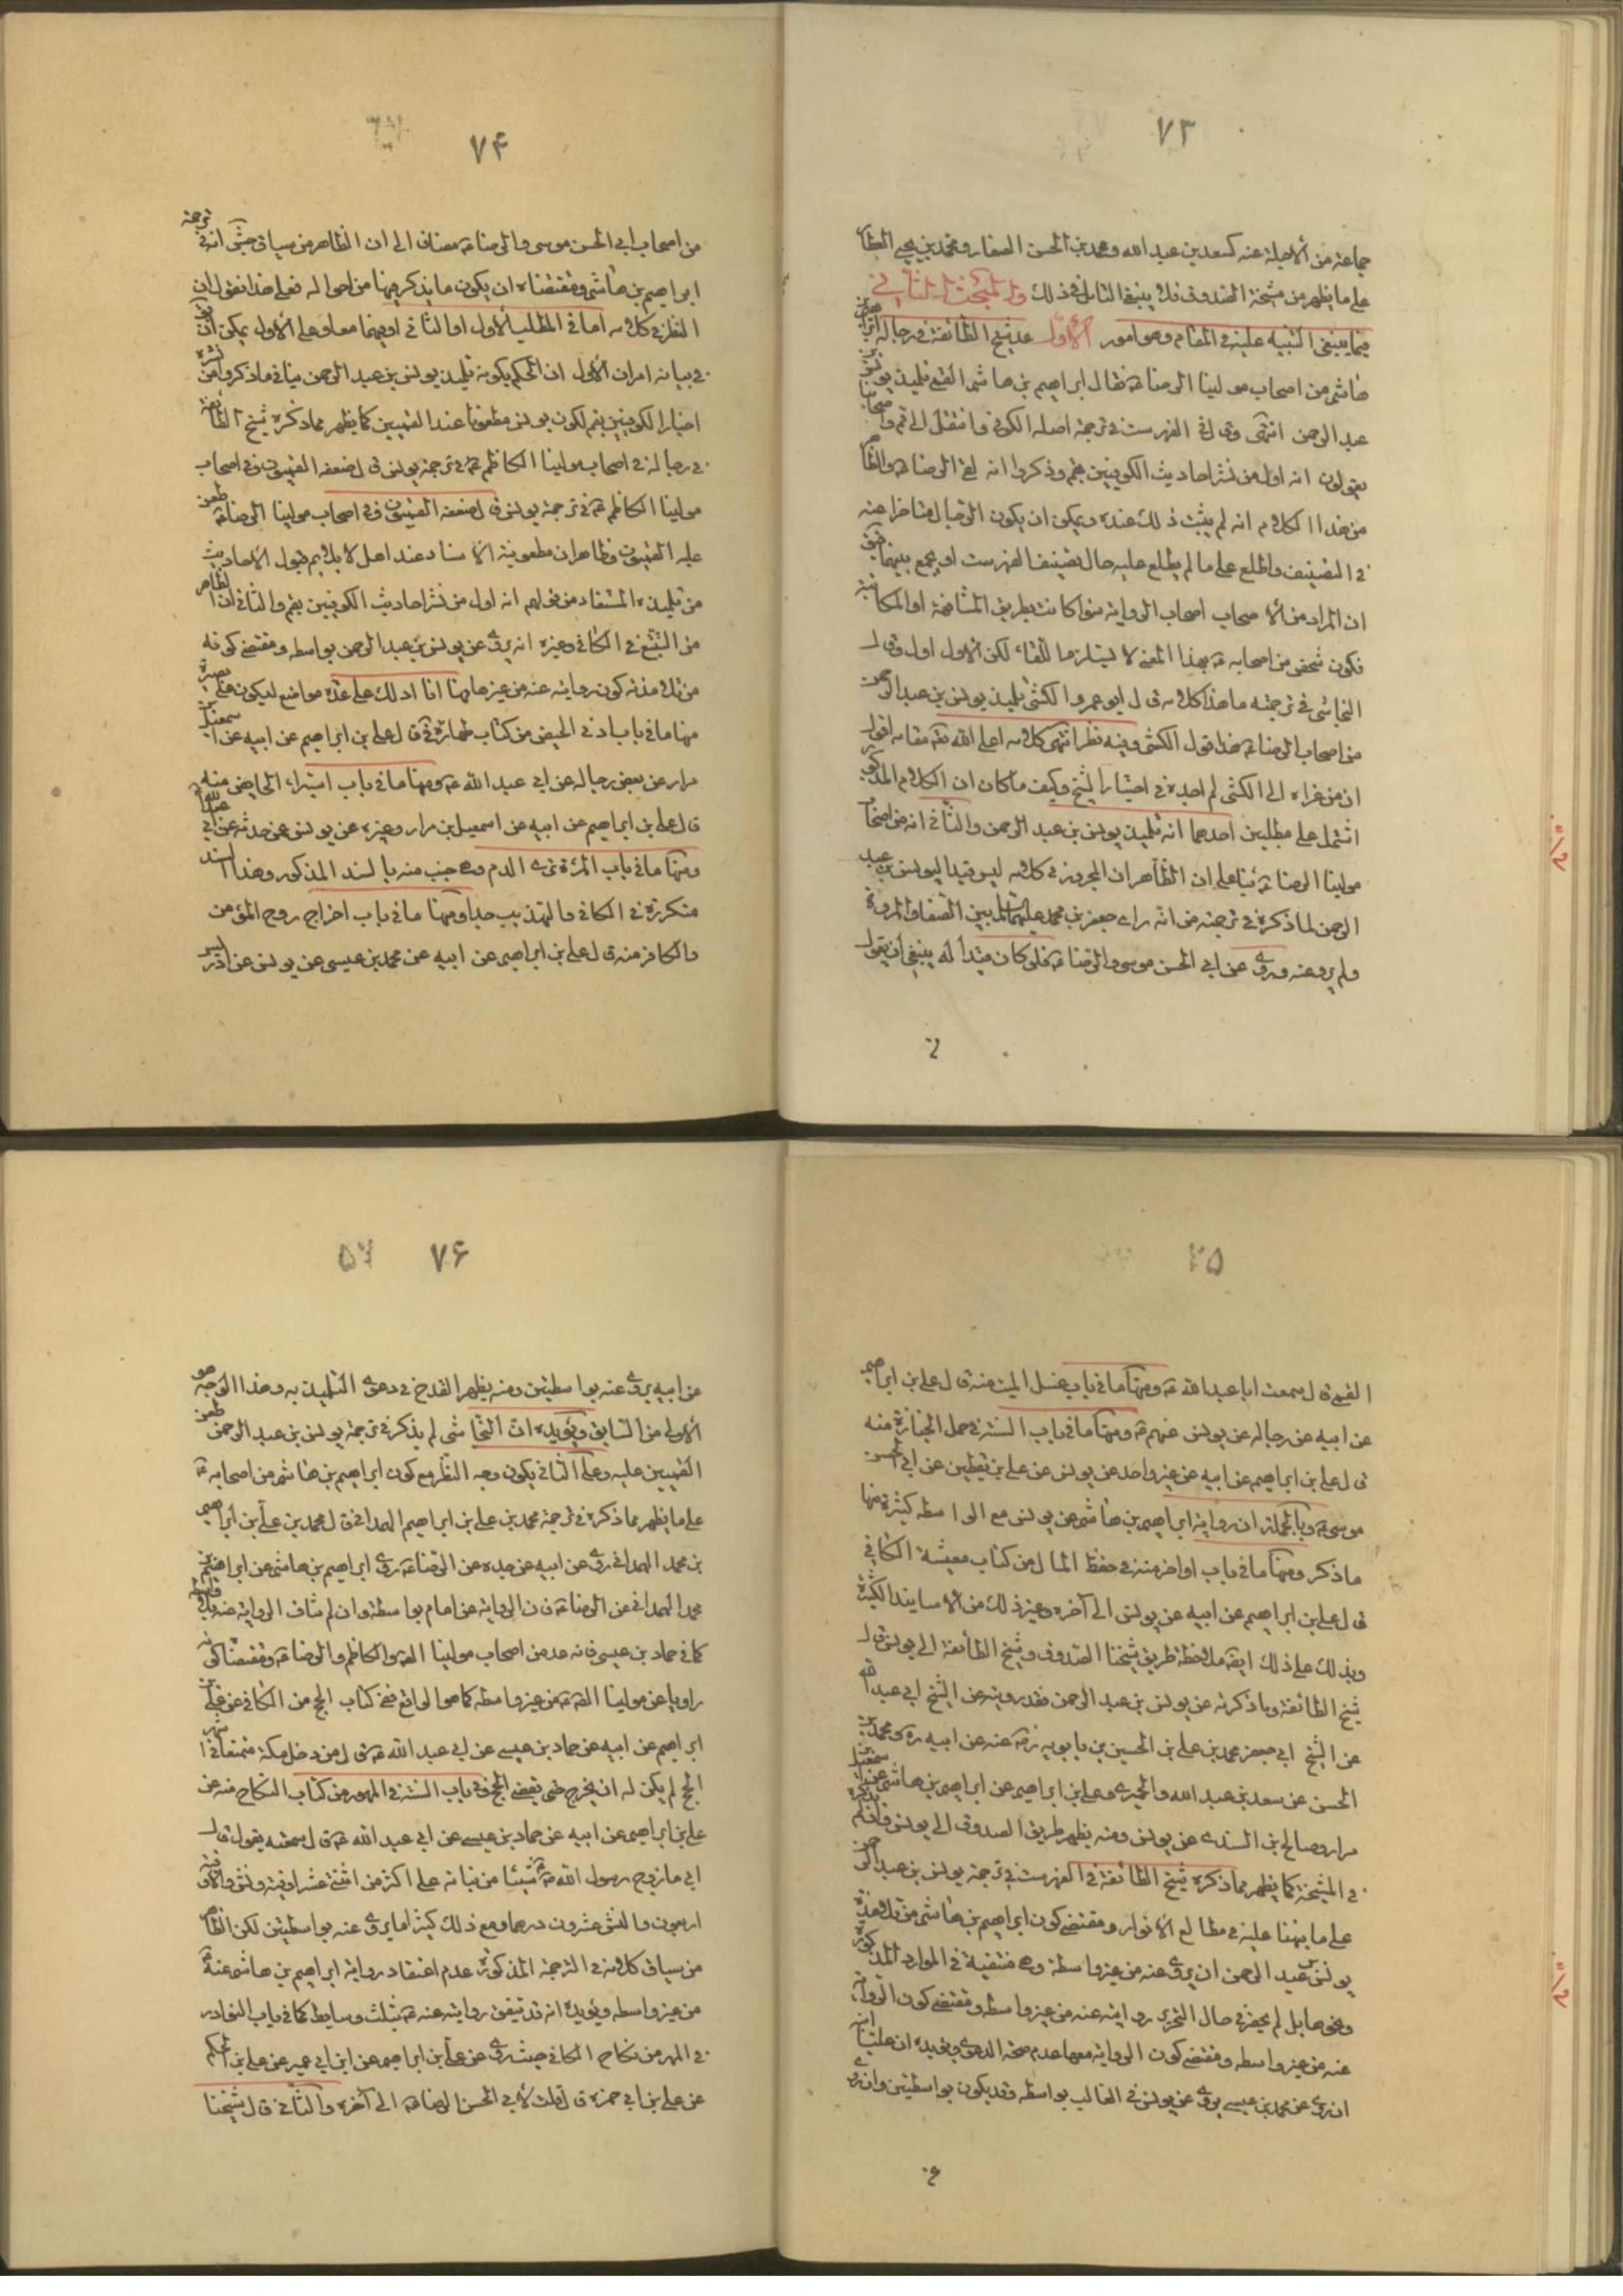 ٧٣
جماعة من الأجلة عنه كسعد بن عبد الله ومحمد بن الحسن الصفار ومحمد بن يحيى العطار
على ما يظهر من مشيخة الصدوق فلا ينبغي التأمل في ذلك والمبحث الثاني في
فيما ينبغي التنبيه عليه في المقام وهو امور الأول عد شيخ الطائفة في رجاله ابراهيم بن
هاشم من اصحاب مولينا الرضا ع فقال ابراهيم بن هاشم القمي تلميذ يونس بن
عبد الرحمن انتهى وقال في الفهرست في ترجمة اصله الكوفي وانتقل الى قم واصحابنا
يقولون انه اول من نشر احاديث الكوفيين بقم وذكروا انه لقي الرضا ع والظاهر
من هذا الكلام انه لم يثبت ذلك عنده ويمكن ان يكون الرجال متأخرا عنه
في التصنيف واطلع على ما لم يطلع عليه حال تصنيف الفهرست او يجمع بينهما
ان المراد من الاصحاب اصحاب الرواية سواء كانت بطريق المشافهة او المكاتبة
فكون شخص من اصحابه ع بهذا المعنى لا يستلزم اللقاء لكن الاول اولى وقال
النجاشي في ترجمته ما هذا كلامه قال ابو عمرو الكشي تلميذ يونس بن عبد الرحمن
من اصحاب الرضا ع هذا قول الكشي وفيه نظر انتهى كلامه اعلى الله مقامه اقول
ان من عزاه الى الكشي لم اجده في اختيار الشيخ وكيف ما كان ان الكلام المذكور
اشتمل على مطلبين احدهما انه تلميذ يونس بن عبد الرحمن والثاني انه من اصحاب
مولينا الرضا ع بناء على ان الظاهر ان المجرور في كلامه ليس قيدا ليونس بن عبد
الرحمن لما ذكره في ترجمته من انه راى جعفر بن محمد عليهما السلام بين الصفا والمروة
ولم يرو عنه وروى عن ابي الحسن موسى والرضا ع فلو كان قيدا له ينبغي ان يقول
٧۴
من اصحاب ابي الحسن موسى والرضا ع مضافا الى ان الظاهر من سياق حتى انه في ترجمة
ابراهيم بن هاشم ومقتضاه ان يكون ما يذكر فيها من احواله فعلى هذا نقول ان
النظر في كلامه اما في المطلب الأول او الثاني او فيهما معا وعلى الأول يمكن ان يق
في بيانه امران الأول ان الحكم بكونه تلميذ يونس بن عبد الرحمن ينافي ما ذكروا من نشره
اخبار الكوفيين بقم لكون يونس مطعونا عند القميين كما يظهر مما ذكره شيخ الطائفة
في رجاله في اصحاب مولينا الكاظم ع في ترجمة يونس قال ضعفه القميون وفي اصحاب
مولينا الكاظم ع في ترجمة يونس قال ضعفه القميون وفي اصحاب مولينا الرضا ع طعن
عليه القميون وظاهر ان مطعونية الاستاد عند اهل لا يلايم قبول الاحاديث
من تلميذه المستفاد من قولهم انه اول من نشر احاديث الكوفيين بقم والثاني ان الظاهر
من التتبع في الكافي وغيره انه يروي عن يونس بن عبد الرحمن بواسطه ومقتضى كونه
من تلامذته كون روايته عنه من غيرها وها انا ادلك على عدة مواضع ليكون على بصيرة
منها ما في باب ادنى الحيض من كتاب طهارة في قال علي بن ابراهيم عن ابيه عن اسمعيل بن
مرار عن بعض رجاله عن ابي عبد الله ع ومنها ما في باب استبراء الحايض منه
قال علي بن ابراهيم عن ابيه عن اسمعيل بن مرار وغيره عن يونس عن حدثه عن ابي عبد الله
ومنها ما في باب المرئة ترى الدم وهي جنب منه بالسند المذكور وهذا السند
متكررة في الكافي والتهذيب جدا ومنها ما في باب اخراج روح المؤمن
والكافر منه قال علي بن ابراهيم عن ابيه عن محمد بن عيسى عن يونس عن ادريس
٧۵
القمي قال سمعت ابا عبد الله ع ومنها ما في باب غسل الميت منه قال علي بن ابراهيم
عن ابيه عن رجاله عن يونس عنهم ع ومنها ما في باب السنة في حمل الجنازة منه
قال علي بن ابراهيم عن ابيه عن غير واحد عن يونس عن علي بن يقطين عن ابي الحسن
موسى ع وبالجملة ان رواية ابراهيم بن هاشم عن يونس مع الواسطه كثيرة منها
ما ذكر ومنها ما في باب اواخر منه في حفظ المال من كتاب معيشة الكافي
قال علي بن ابراهيم عن ابيه عن يونس الى آخره وغير ذلك من الاسانيد الكثيرة
ويدلك على ذلك ايضا ملاحظة طريق شيخنا الصدوق وشيخ الطائفة الى يونس قال
شيخ الطائفة وما ذكرته عن يونس بن عبد الرحمن فقد رويته عن الشيخ ابي عبد الله
عن الشيخ ابي جعفر محمد بن علي بن الحسين بن بابويه رضه عنه عن ابيه ره ومحمد بن
الحسن عن سعد بن عبد الله والحميري وعلي بن ابراهيم عن ابراهيم بن هاشم عن اسمعيل بن
مرار وصالح بن السندي عن يونس ومنه يظهر طريق الصدوق الى يونس وان لم يذكره
في المشيخة كما يظهر مما ذكره شيخ الطائفة في الفهرست في ترجمة يونس بن عبد الرحمن
على ما نبهنا عليه في مطالع الانوار ومقتضى كون ابراهيم بن هاشم من تلامذة
يونس بن عبد الرحمن ان يروي عنه من غير واسطة وهي منتفية في الموارد المذكورة
ونحوها بل لم يحضرني حال التحرير روايته عنه من غير واسطه ومقتضى كون الرواية
عنه من غير واسطه ومقتضى كون الرواية معها عدم صحة الدعوى ويؤيده ان عليا ابنه
ان روى عن محمد بن عيسى يروي عن يونس في الغالب بواسطه وقد يكون بواسطتين وان روى
٧۶
عن ابيه يروي عنه بواسطتين ومنه يظهر القدح في دعوى التلميذية وهذا الوجه هو
الأولى من السابق ويؤيده ان النجاشي لم يذكر في ترجمة يونس بن عبد الرحمن طعن
القميين عليه وعلى الثاني يكون وجه النظر مع كون ابراهيم بن هاشم من اصحابه ع
على ما يظهر مما ذكره في ترجمة محمد بن علي بن ابراهيم الهمداني قال محمد بن علي بن ابراهيم
بن محمد الهمداني روى عن ابيه عن جده عن الرضا ع روى ابراهيم بن هاشم عن ابراهيم بن
محمد الهمداني عن الرضا ع فان الرواية عن امام بواسطة وان لم تناف الرواية عنه بلا واسطه
كما في حماد بن عيسى فانه عد من اصحاب مولينا الصادق والكاظم والرضا ع ومقتضاه كونه
راويا عن مولينا الصادق ع من غير واسطه كما هو الواقع ففي كتاب الحج من الكافي عن علي بن
ابراهيم عن ابيه عن حماد بن عيسى عن ابي عبد الله ع قال من دخل مكة متمتعا في اشهر
الحج لم يكن له ان يخرج حتى يقضي الحج وفي باب السنة في المهور من كتاب النكاح منه عن
علي بن ابراهيم عن ابيه عن حماد بن عيسى عن ابي عبد الله ع قال سمعته يقول قال
ابي ما زوج رسول الله ص شيئا من بناته على اكثر من اثنتي عشر اوقية ونش والاوقية
اربعون والنش عشرون درهما ومع ذلك كثيرا ما يروي عنه بواسطتين لكن الظاهر
من سياق كلامه في الترجمة المذكورة عدم اعتقاد رواية ابراهيم بن هاشم عنه ع
من غير واسطه ويؤيده انه قد تتفق روايته عنه ع بثلث وسايط كما في باب النوادر
في المهر من نكاح الكافي حيث روى عن علي بن ابراهيم عن ابيه عن ابن ابي عمير عن علي بن الحكم
عن علي بن ابي حمزة قال قلت لأبي الحسن الرضا ع الى آخره والثاني قال شيخنا